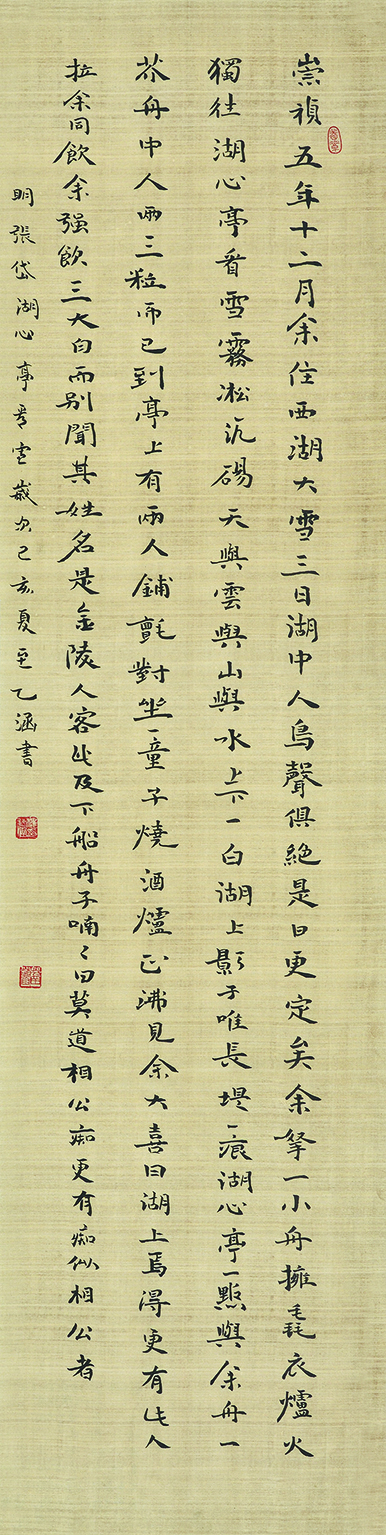 崇禎五年十二月余住西湖大雪三日湖中人鳥聲俱絕是日更定矣余拏一小舟擁毳衣爐火
獨往湖心亭看雪霧凇沆碭天與雲與山與水上下一白湖上影子唯長堤一痕湖心亭一點與余舟一
芥舟中人兩三粒而已到亭上有兩人鋪氈對坐一童子燒酒爐正沸見余大喜曰湖上焉得更有此人
拉余同飲余强飲三大白而别聞其姓名是金陵人客此及下船舟子喃々曰莫道相公痴更有痴似相公者
明張岱湖心亭看雪歲次己亥夏至乙涵書